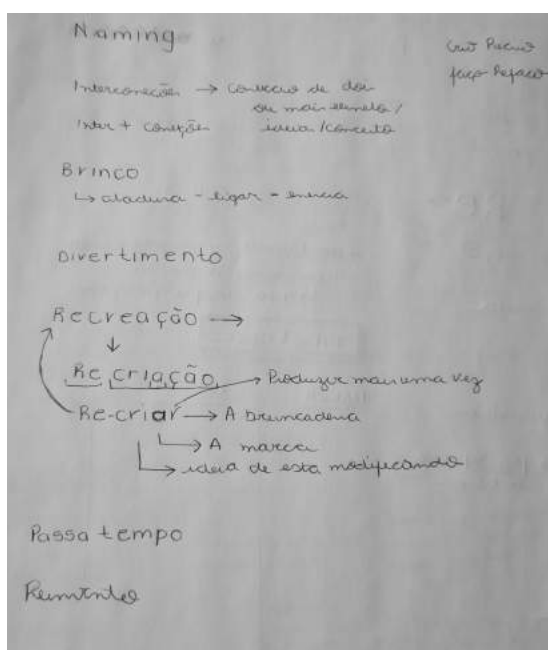 Naming
Crio Recrio
faço Refaço
Interconecões → conecção de dois
ou mais elemeto/
Inter + coneções ideia/conceito
Brinco
↳ atadura - ligar - enercia
Divertimento
Recreação →
Re criação
Produzir mais uma vez
Re-criar → A brincadeira
A marca
ideia de esta modificando
Passa tempo
Reinvento